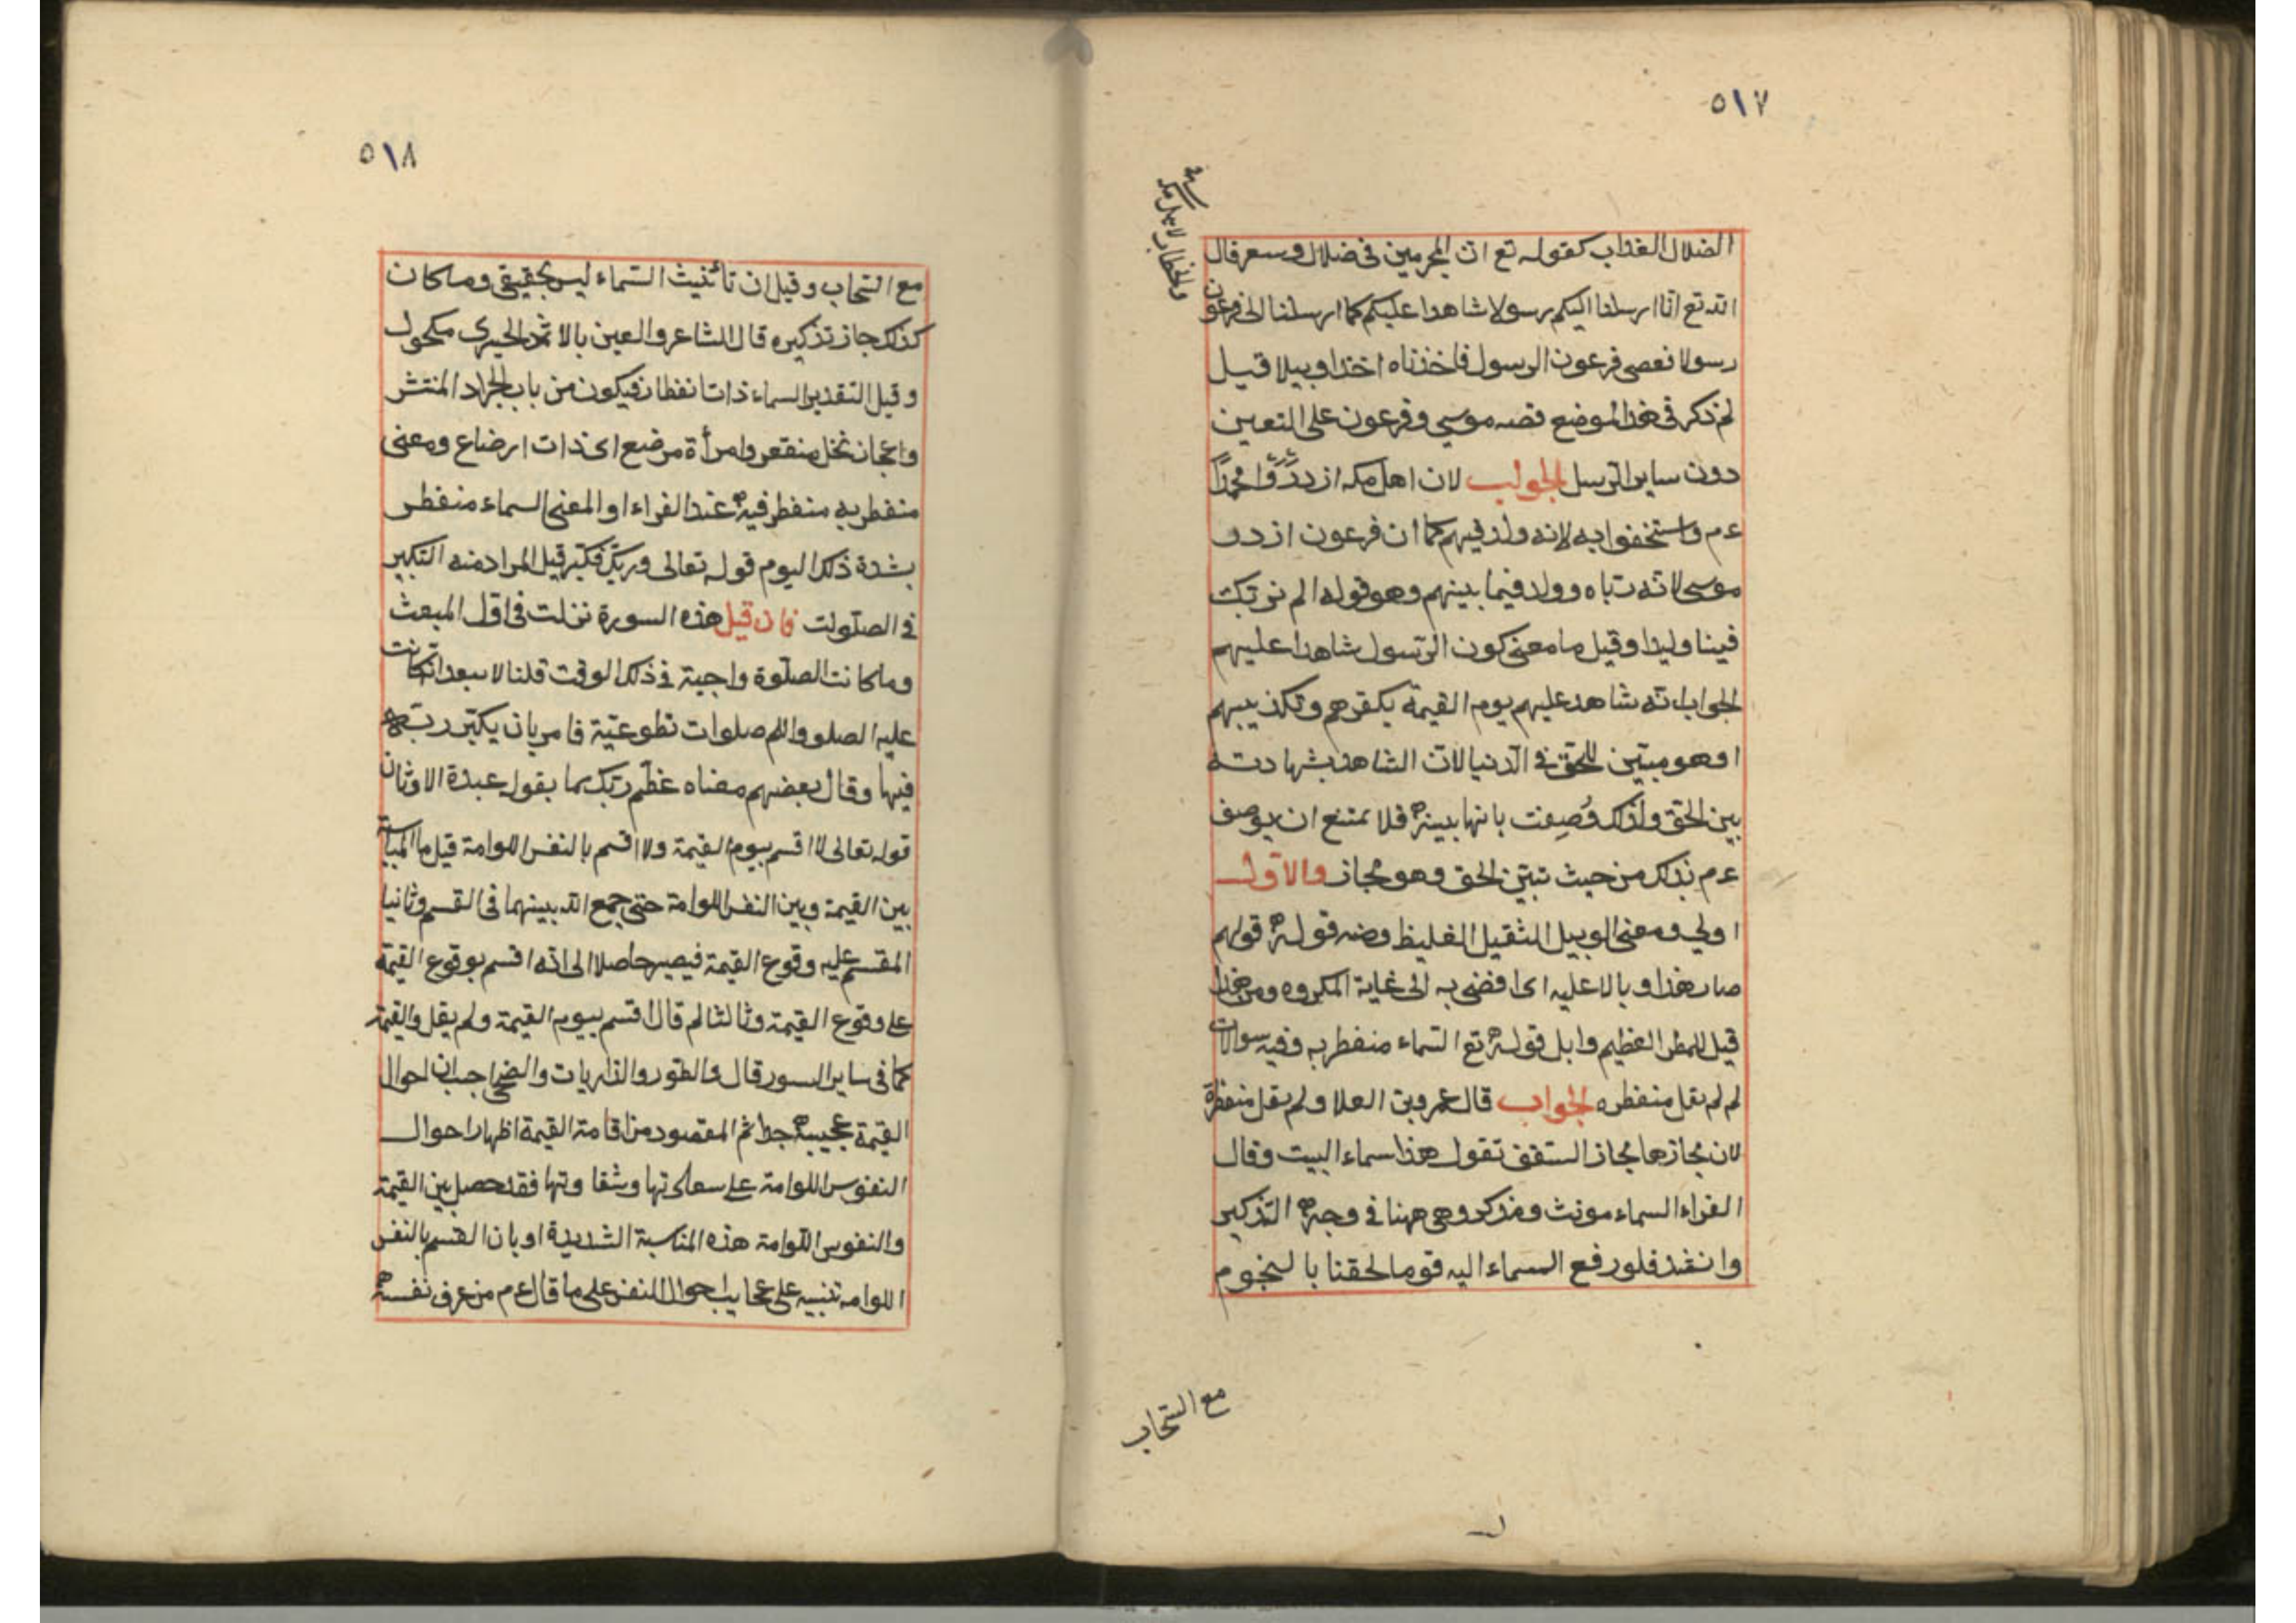 ٥١٧
والخطاب لاهل مكة
الضلال العذاب كقوله تع ان المجرمين فى ضلال وسعر قال
الله تع انا ارسلنا اليكم رسولا شاهدا عليكم كما ارسلنا الى فرعون
رسولا فعصى فرعون الرسول فاخذناه اخذا وبيلا قيل
لم ذكر فى هذا الموضع قصه موسى وفرعون على التعين
دون ساير الرسل الجواب لان اهل مكه ازدروا محمدا
عم واستخفوا به لانه ولد فيهم كما ان فرعون ازدو
موسى لانه رباه وولد فيما بينهم وهو قوله الم نربك
فينا وليدا وقيل ما معنى كون الرسول شاهدا عليهم
الجواب انه شاهد عليهم يوم القيمة بكفرهم وتكذيبهم
او هو مبين للحق فى الدنيا لان الشاهد بشهادته
بين الحق ولذلك وُصِفت بانها بينة فلا يمتنع ان يوصف
عم بذلك من حيث تبين الحق وهو مجاز والاول
اولى ومعنى الوبيل الثقيل الغليظ ومنه قوله قولهم
صار هذا وبالا عليه اى افضى به الى غاية المكروه ومن هذا
قيل للمطر العظيم وابل قوله تع السماء منفطر به وفيه سوالات
لم لم يقل منفطره الجواب قال عمرو بن العلا ولم يقل منفطرة
لان مجازها مجاز السقف تقول هذا سماء البيت وقال
الفراء السماء مونث ومذكر وهى ههنا فى وجه التذكير
وانشد فلو رفع السماء اليه قوما لحقنا بالنجوم
مع السحاب
٥١٨
مع السحاب وقيل ان تأنيث السماء ليس بحقيقى وما كان
كذلك جاز تذكيره قال الشاعر والعين بالاثمد الحيرى مكحول
وقيل التقدير السماء ذات انفطار فيكون من باب الجراد المنتشر
واعجاز نخل منقعر وامرأة مرضع اى ذات ارضاع ومعنى
منفطر به منفطر فيه عند الفراء او المعنى السماء منفطر
بشدة ذلك اليوم قوله تعالى وربك فكبر قيل المراد منه التكبير
فى الصلوات فان قيل هذه السورة نزلت فى اول المبعث
وما كانت الصلوة واجبة فى ذلك الوقت قلنا لا يبعد انه كانت
عليه الصلو والم صلوات تطوعية فامر بان يكبر ربه
فيها وقال بعضهم معناه عظم ربك بما يقول عبدة الاوثان
قوله تعالى لا اقسم بيوم القيمة ولا اقسم بالنفس اللوامة قيل ما المناسبة
بين القيمة وبين النفس اللوامة حتى جمع الله بينهما فى القسم وثانيا
المقسم عليه وقوع القيمة فيصير حاصلا الى انه اقسم بوقوع القيمة
على وقوع القيمة وثالثا لم قال اقسم بيوم القيمة ولم يقل والقيمة
كما فى ساير السور قال والطور والذاريات والضحى اجيب ان احوال
القيمة عجيبة جدا ثم المقصود من اقامة القيمة اظهار احوال
النفوس اللوامة على سعادتها وشقاوتها فقد حصل بين القيمة
والنفوس اللوامة هذه المناسبة الشديدة او بان القسم بالنفس
اللوامه تنبيه على عجايب احوال النفس على ما قال عم من عرف نفسه